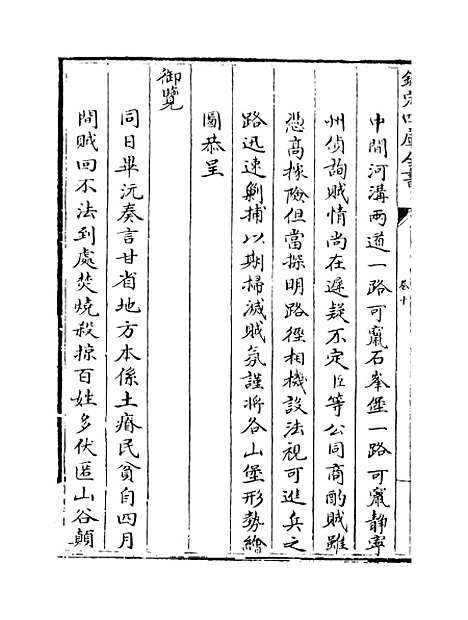 欽定四庫全書
卷十
中間河溝兩道一路可竄石峯堡一路可竄靜寧
州偵詢賊情尚在遲疑不定臣等公同商酌賊雖
憑高據險但當探明路徑相機設法視可進兵之
路迅速剿捕以期掃滅賊氛謹將各山堡形勢繪
圖恭呈
御覽
同日畢沅奏言甘省地方本係土瘠民貧自四月
間賊回不法到處焚燒殺掠百姓多伏匿山谷顛